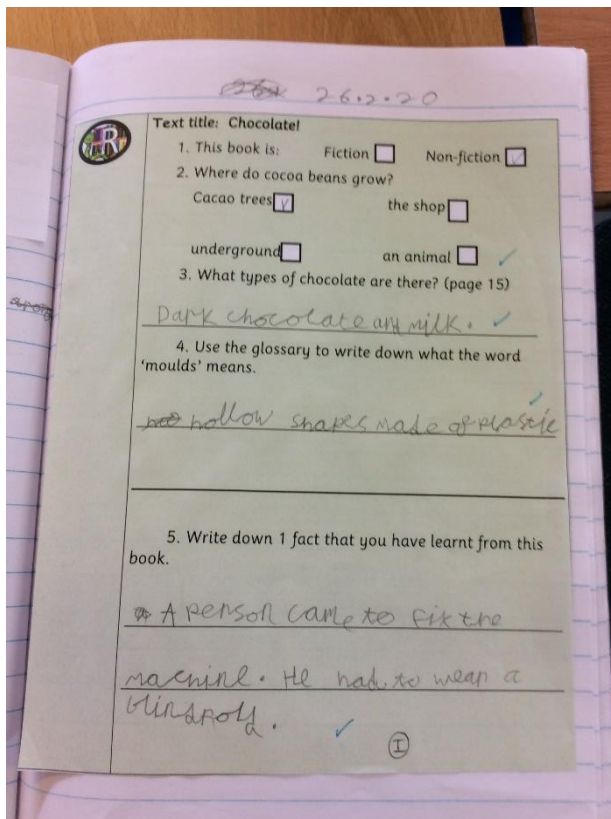 26.2.20
R
Text title: Chocolate!
1. This book is: Fiction Non-fiction
2. Where do cocoa beans grow?
Cacao trees the shop
underground an animal
3. What types of chocolate are there? (page 15)
Dark chocolate and milk.
4. Use the glossary to write down what the word
'moulds' means.
hollow shapes made of plastic
5. Write down 1 fact that you have learnt from this
book.
A person came to fix the
machine. He had to wear a
I